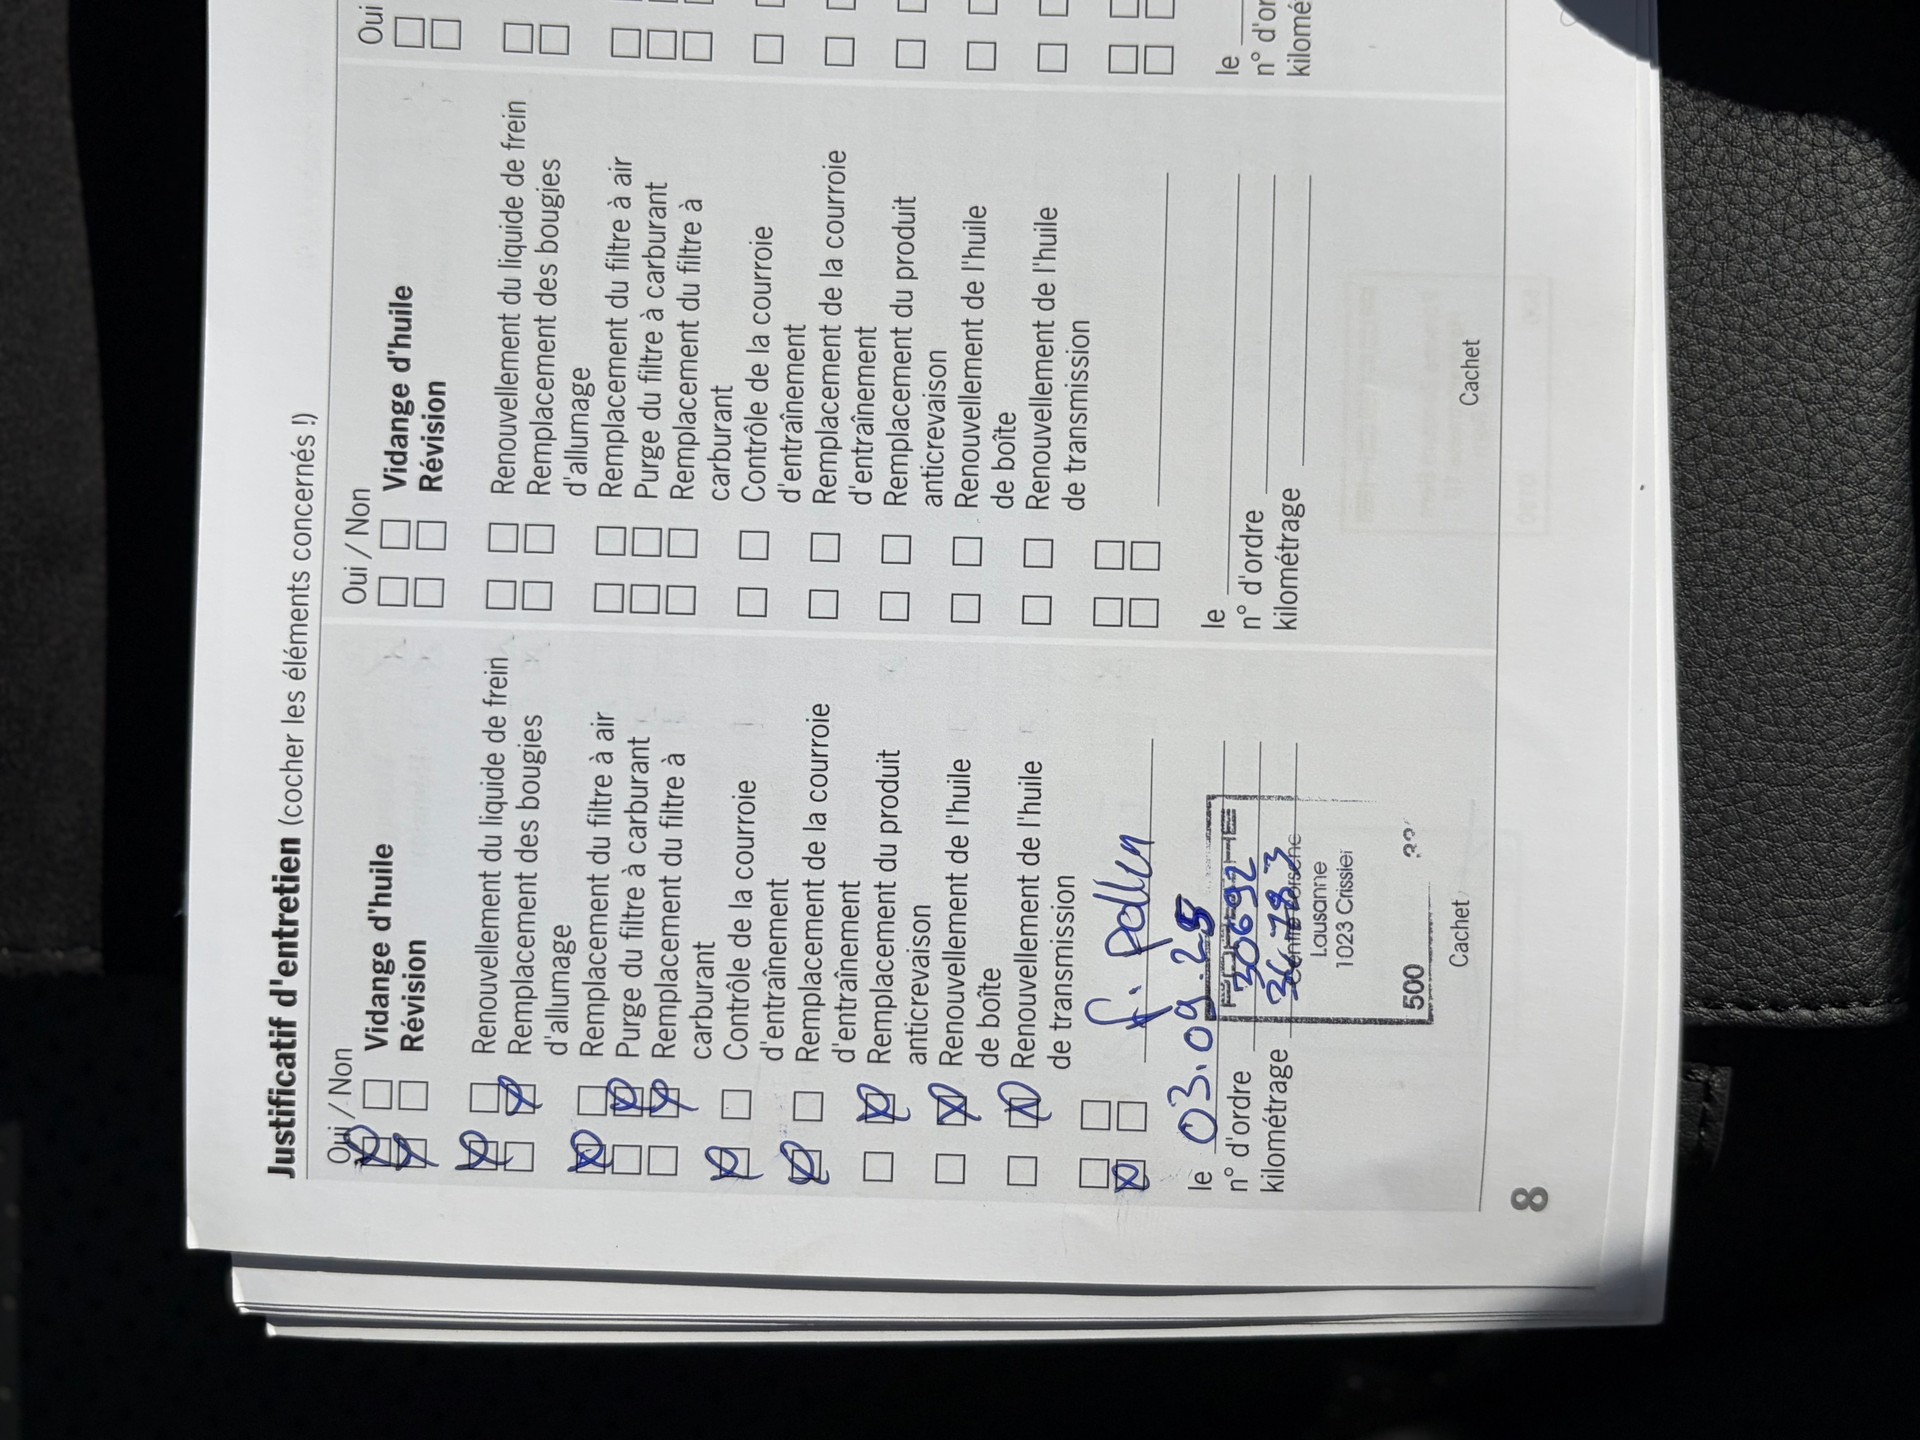 Justificatif d'entretien (cocher les éléments concernés !)
Oui / Non
Vidange d'huile
Révision
Renouvellement du liquide de frein
Remplacement des bougies
d'allumage
Remplacement du filtre à air
Purge du filtre à carburant
Remplacement du filtre à
carburant
Contrôle de la courroie
d'entraînement
Remplacement de la courroie
d'entraînement
Remplacement du produit
anticrevaison
Renouvellement de l'huile
de boîte
Renouvellement de l'huile
de transmission
f. pollen
le 03.09.25
n° d'ordre 30692
kilométrage
Lausanne
1023 Crissier
500
Cachet
8
Oui / Non
Vidange d'huile
Révision
Renouvellement du liquide de frein
Remplacement des bougies
d'allumage
Remplacement du filtre à air
Purge du filtre à carburant
Remplacement du filtre à
carburant
Contrôle de la courroie
d'entraînement
Remplacement de la courroie
d'entraînement
Remplacement du produit
anticrevaison
Renouvellement de l'huile
de boîte
Renouvellement de l'huile
de transmission
le
n° d'ordre
kilométrage
Cachet
Oui
le
n° d'or
kilomé